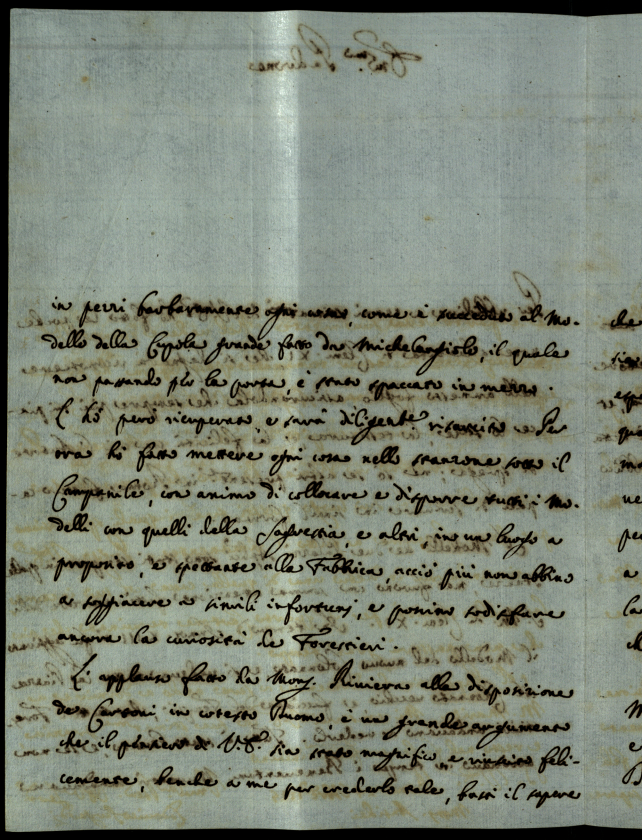 in pezzi barbaramente ogni cosa, come è succeduto al Mo-
dello della Cupola grande fatto da Michelangiolo, il quale
non passando p(er) la porta, è stato spaccato in mezzo.
L'hò però ricuperato, e sarà diligente(mente) risarcito. Per
ora hò fatto mettere ogni cosa nello stanzone sotto il
Campanile, con animo di collocare e disporre tutti i Mo-
delli con quelli della Sagrestia, e altri, in un luogo a
proposito, e spettante alla Fabbrica, acciò più non abbino
a soggiacere a simili infortunj, e possino sodisfare
ancora la curiosità de Forestieri.
L'applauso fatto da Mons. Riviera alla disposizione
de Cartoni in cotesto Duomo, è un grande argumento
che il pensiero di V.S. sia stato magnifico, e riuscito feli-
cemente, benche a me per crederlo tale, basti il sapere